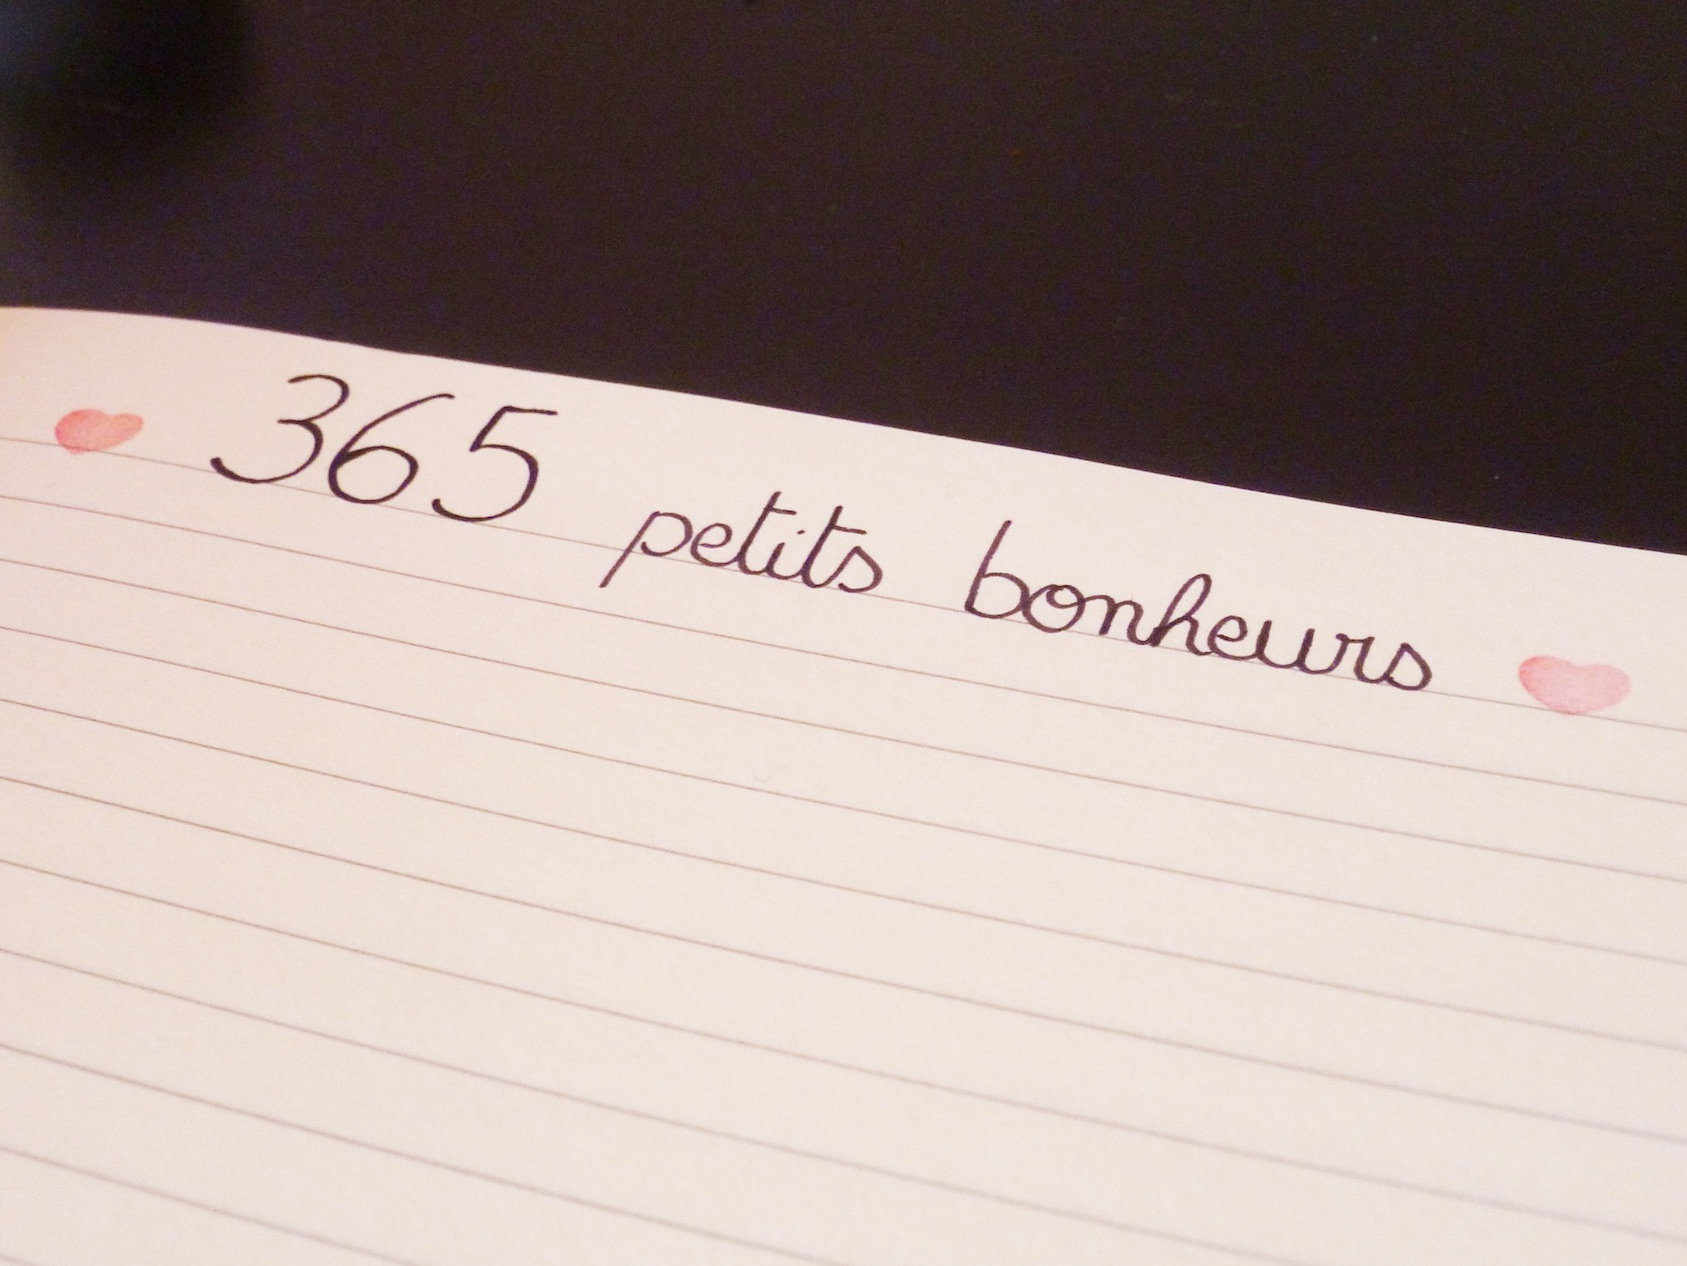 365 petits bonheurs